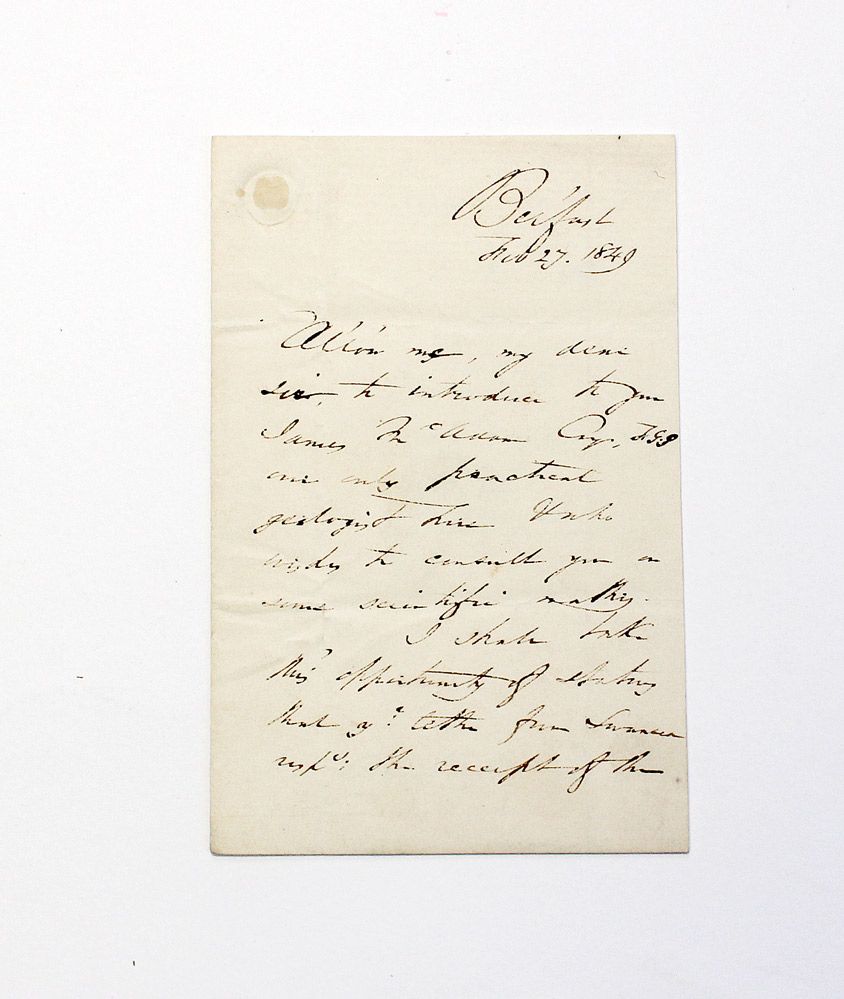 Belfast
Feb 27. 1849
Allow me, my dear
sir, to introduce to you
James McAdam Esqr., FGS
our only practical
geologist here Who
wishes to consult you on
some scientific matters.
I shall take
this opportunity of stating
that yr. letter from Swansea
respg. the receipt of the